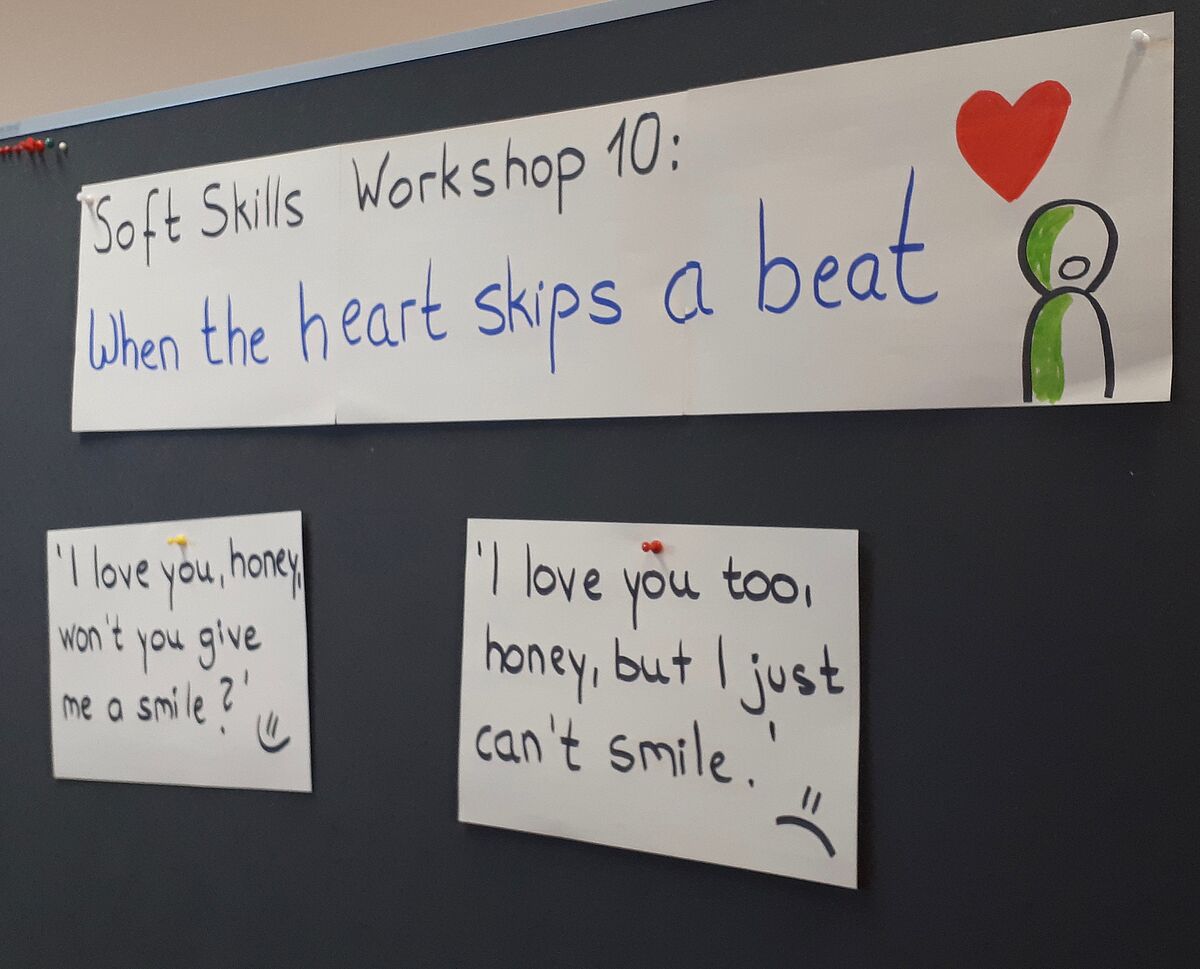 Soft Skills Workshop 10:
When the heart skips a beat
'I love you, honey,
won't you give
me a smile?'
'I love you too,
honey, but I just
can't smile.'